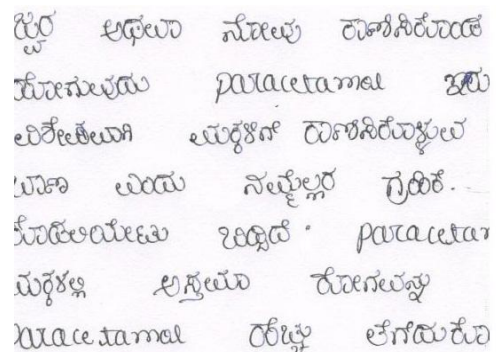 ಜ್ವರ ಅಥವಾ ನೋವು ಕಾಣಿಸಿಕೊಂಡ
ಹೋಗುವುದು paracetamol ಇದು
ವಿಶೇಷವಾಗಿ ಮಕ್ಕಳಿಗೆ ಕಾಣಿಸಿಕೊಳ್ಳುವ
ಬಾಣ ಎಂದು ನಮ್ಮೆಲ್ಲರ ಗ್ರಹಿಕೆ.
ಕೊಡಲಿಯೇಟು ಬಿದ್ದಿದೆ. paraceta
ಮಕ್ಕಳಲ್ಲಿ ಅಸ್ತಮಾ ರೋಗವನ್ನು
paracetamol ಹೆಚ್ಚು ತೆಗೆದುಕೊ